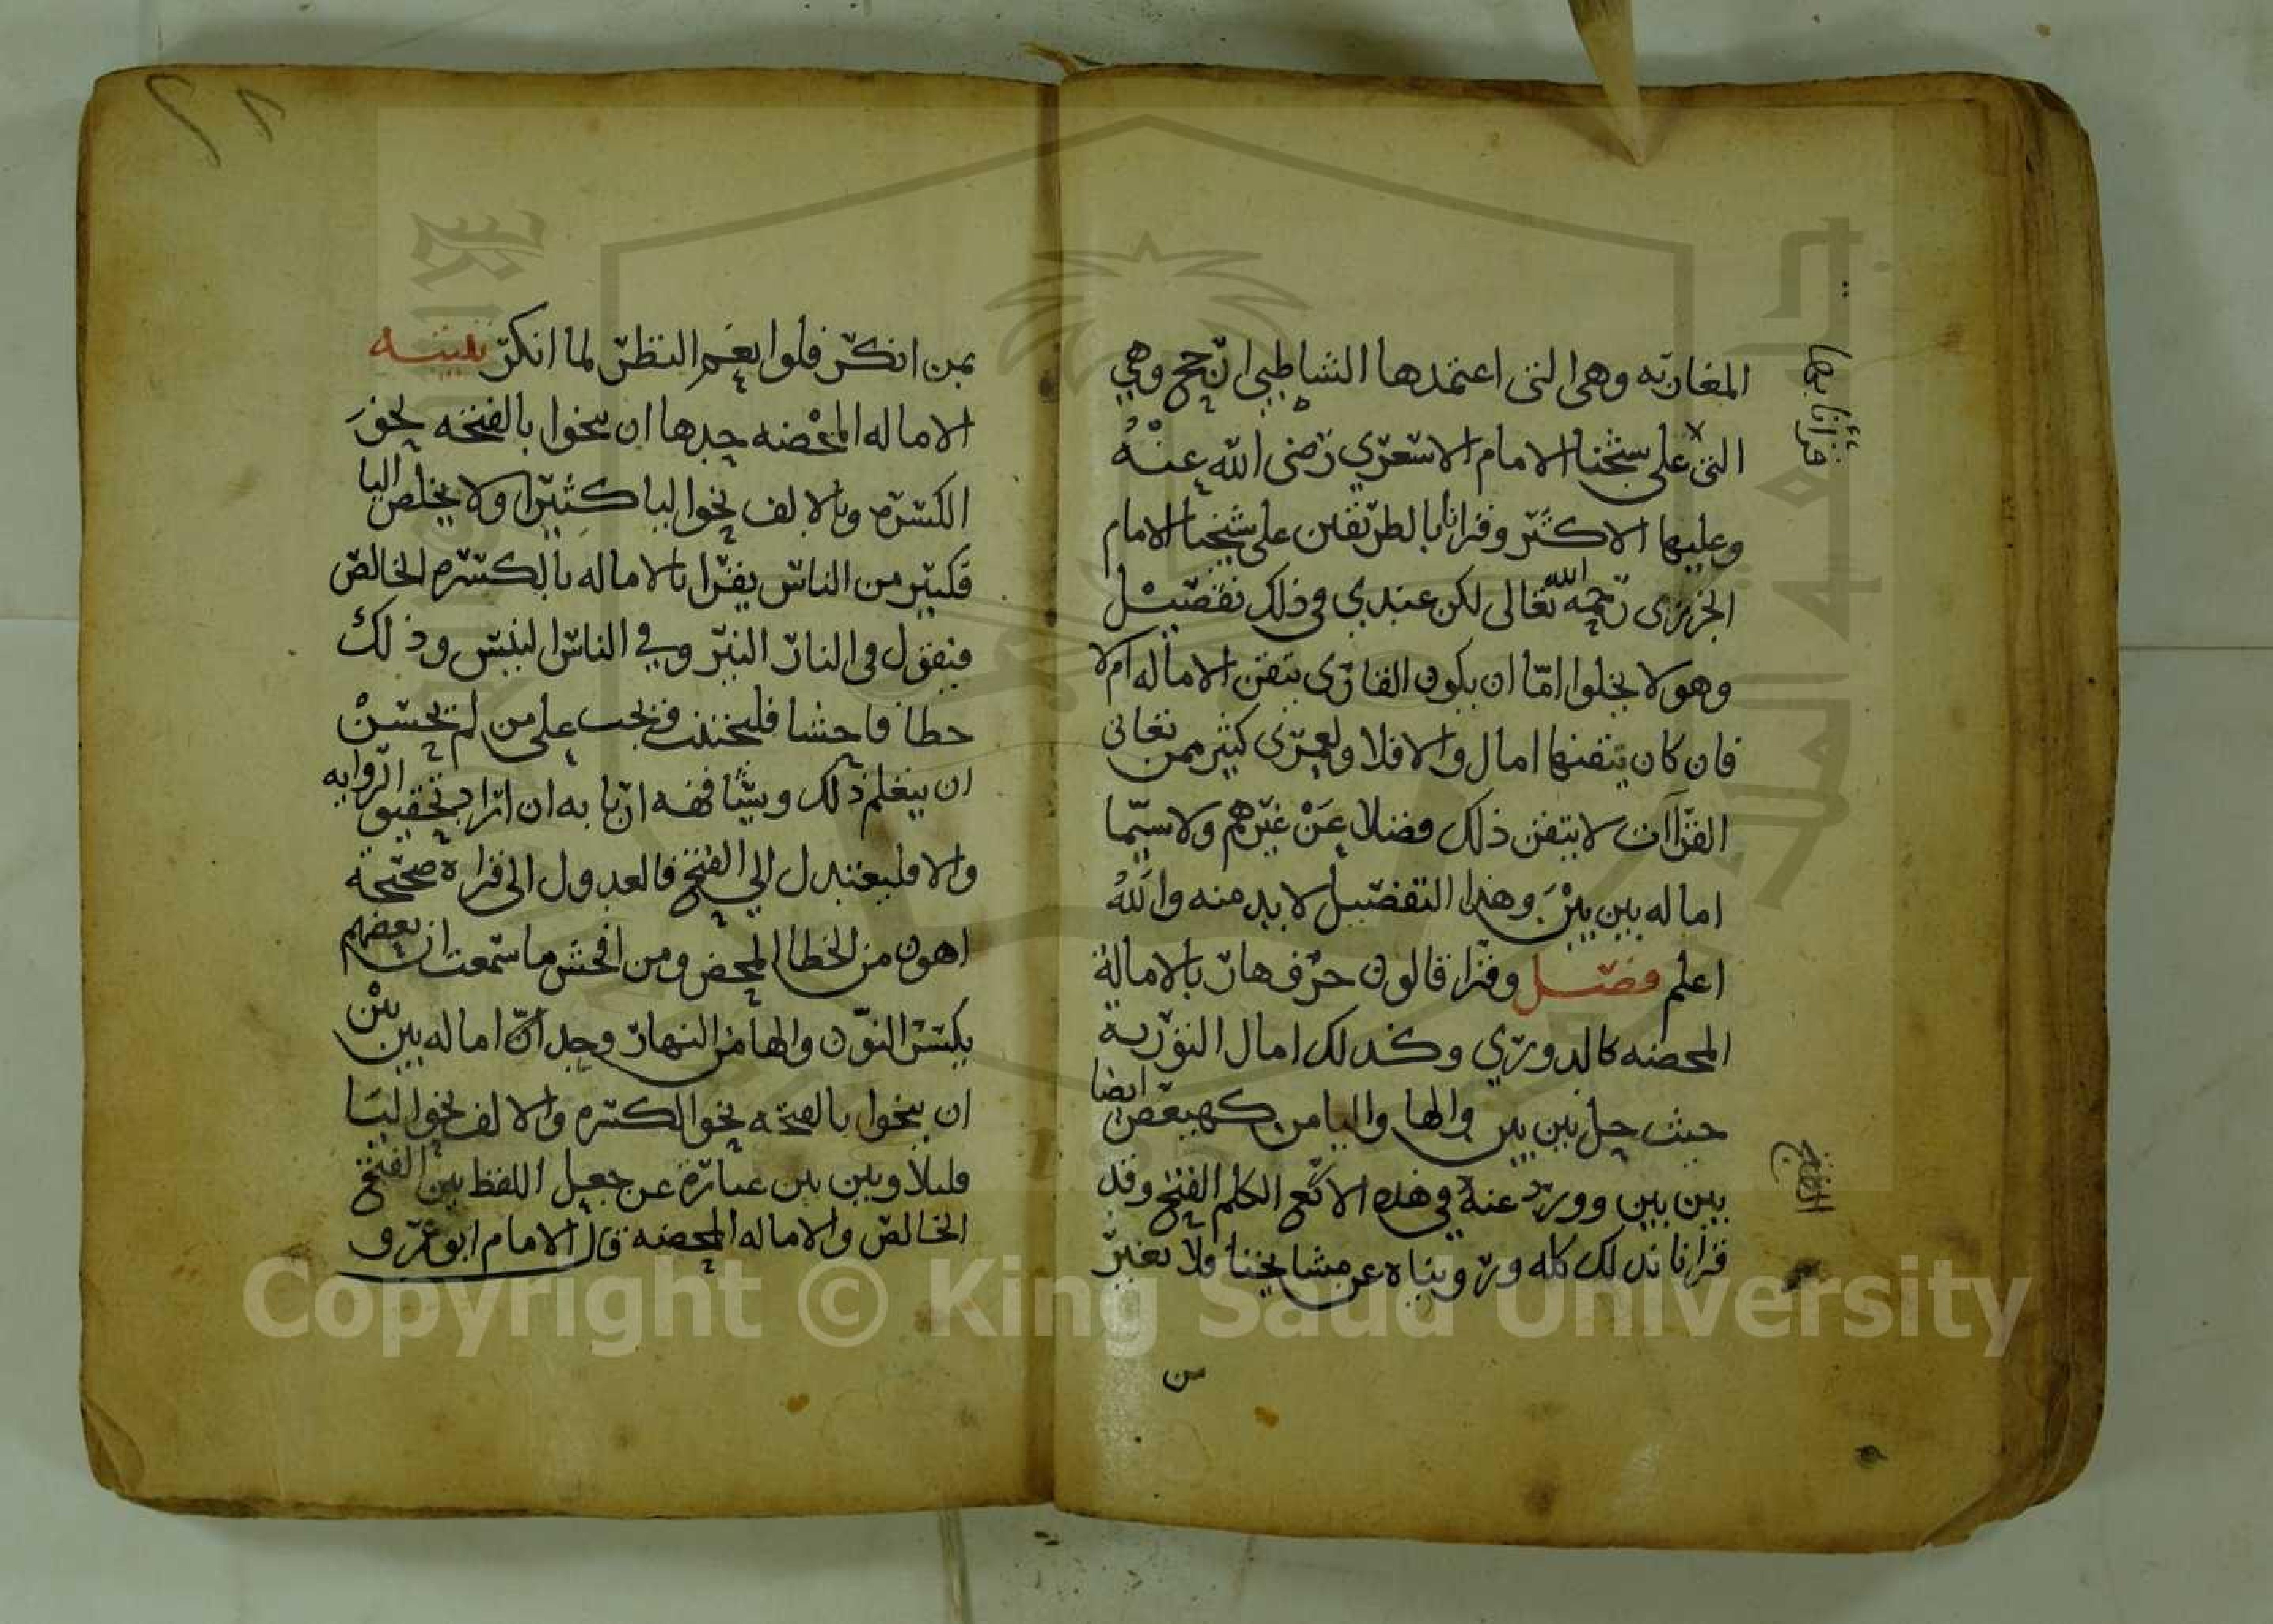 المغاربه وهي التي اعتمدها الشاطبي ارجح وهي
التي على شيخنا الامام الاشعري رضي الله عنه
قرأنا بها
وعليها الاكثر وقرانا بالطريقين على شيخنا الامام
الجزري رحمه الله تعالى لكن عندي في ذلك تفصيل
وهو لا يخلوا امّا ان يكون القارى يتقن الاماله ام لا
فان كان يتقنها امال والا فلا ولعمرى كثير ممن تعانى
القراآت لا يتقن ذلك فضلا عَنْ غيرهم ولا سيّما
اماله بين بينَ وهذا التفصيل لا بد منه والله
اعلم فصل وقرا قالون حرف هار بالامالة
المحضه كالدوري وكذلك امال التورية
حيث حل بين بين والها واليا من كهيعص ايضا
بين بين وورد عنه في هذه الاربع الكلم الفتح وقد
الفتح
قرانا بذلك كله ورويناه عن مشايخنا فلا تغير
من
٢٨
بمن انكر فلوا نعم النظر لما انكر تنبيه
الاماله المحْضه حدها ان ينحوا بالفتحه نحوَ
الكسره وبالالف نحوا ليا كثيرا ولا يخلص اليا
فكثير من الناس يقرا بالاماله بالكسره الخالص
فيقول في النار النير وفي الناس النيس وذلك
خطا فاحشا فليجتنب ويجب على من لم يحسنْ
ان يتعلم ذلك ويشافهه اربابه ان اراد تحقيق الروايه
والا فليعتدل الي الفتح فالعدول الى قراه صحيحة
اهون من الخطا المحض ومن افحش ما سمعت ان بعضهم
يكسر النون والها من النهار وحد انّ اماله بين بينْ
ان ينحوا بالفتحه نحو الكسره والالف نحوا ليا
قليلا وبين بين عبارة عن جعل اللفظ بين الفتح
الخالص والاماله المحضه قال الامام ابو عمرو
Copyright © King Saud University